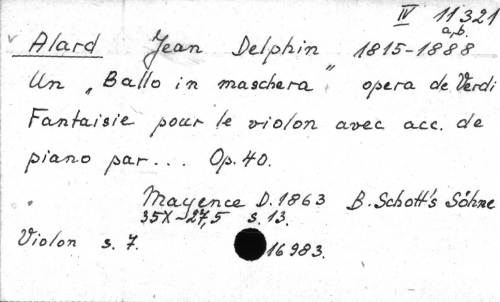 IV 11321
a,b.
Alard Jean Delphin 1815-1888
Un „Ballo in maschera" opera de Verdi
Fantaisie pour le violon avec acc. de
piano par... Op. 40.
Mayence D. 1863 B. Schott's Söhne
35X-27,5 s. 13.
Violon s. 7. 16983.